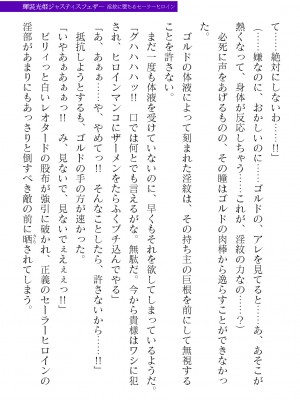 輝装光姫ジャスティスフェザー 淫紋に堕ちるセーラーヒロイン
て……絶対にしないわ……!!」
「……嫌なのに、おかしいのに……ゴルドの、アレを見てると……あ、あそこが
熱くなって、身体が反応しちゃう……これが、淫紋の力なの……?）
必死に声をあげるものの、その瞳はゴルドの肉棒から逸らすことができなかっ
た。
ゴルドの体液によって刻まれた淫紋は、その持ち主の巨根を前にして無視する
ことを許さない。
まだ一度も体液を受けていないのに、早くもそれを欲してしまっているようだ。
「グハハハッ!!　口では何とでも言えるがな。無駄だ。今から貴様はワシに犯
され、ヒロインマンコにザーメンをたらふくブチ込んでやる」
「あ、あぁ……や、やめてっ!!　そんなことしたら、許さないから……!!」
抵抗しようとするも、ゴルドの手の方が速かった。
「いやぁあぁぁっ!!　み、見ないで、見ないでぇえぇぇっ!!」
ビリィっと白いレオタードの股布が強引に破かれ、正義のセーラーヒロインの
淫部があまりにもあっさりと倒すべき敵の前に晒されてしまう。